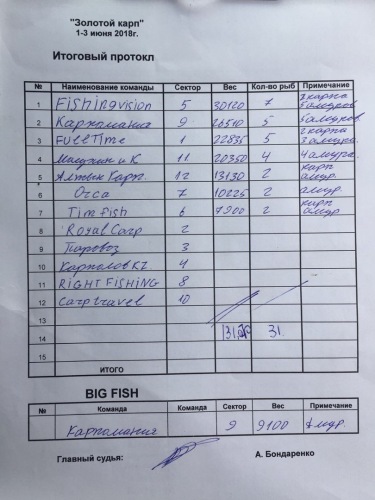 "Золотой карп"
1-3 июня 2018г.
Итоговый протокл
№ Наименование команды Сектор Вес Кол-во рыб Примечание
1 Fishingvision 5 30120 7 2 карпа 5 амуров
2 Карпомания 9 26510 5 5 амуров
3 FullTime 1 22835 5 2 карпа 3 амура
4 и К 11 20350 4 4 амура
5 Алтын Карп 12 13130 2 карп амур.
6 Orca 7 10225 2 амур.
7 Tim fish 6 7900 2 карп амур
8 Royal Carp 2
9 Паровоз 3
10 Карполов KZ 4
11 RIGHT FISHING 8
12 Carptravel 10
13
14 31.
15
ИТОГО
BIG FISH
№ Команда Команда Сектор Вес Примечание
Карпомания 9 9100 Амур.
Главный судья: А. Бондаренко